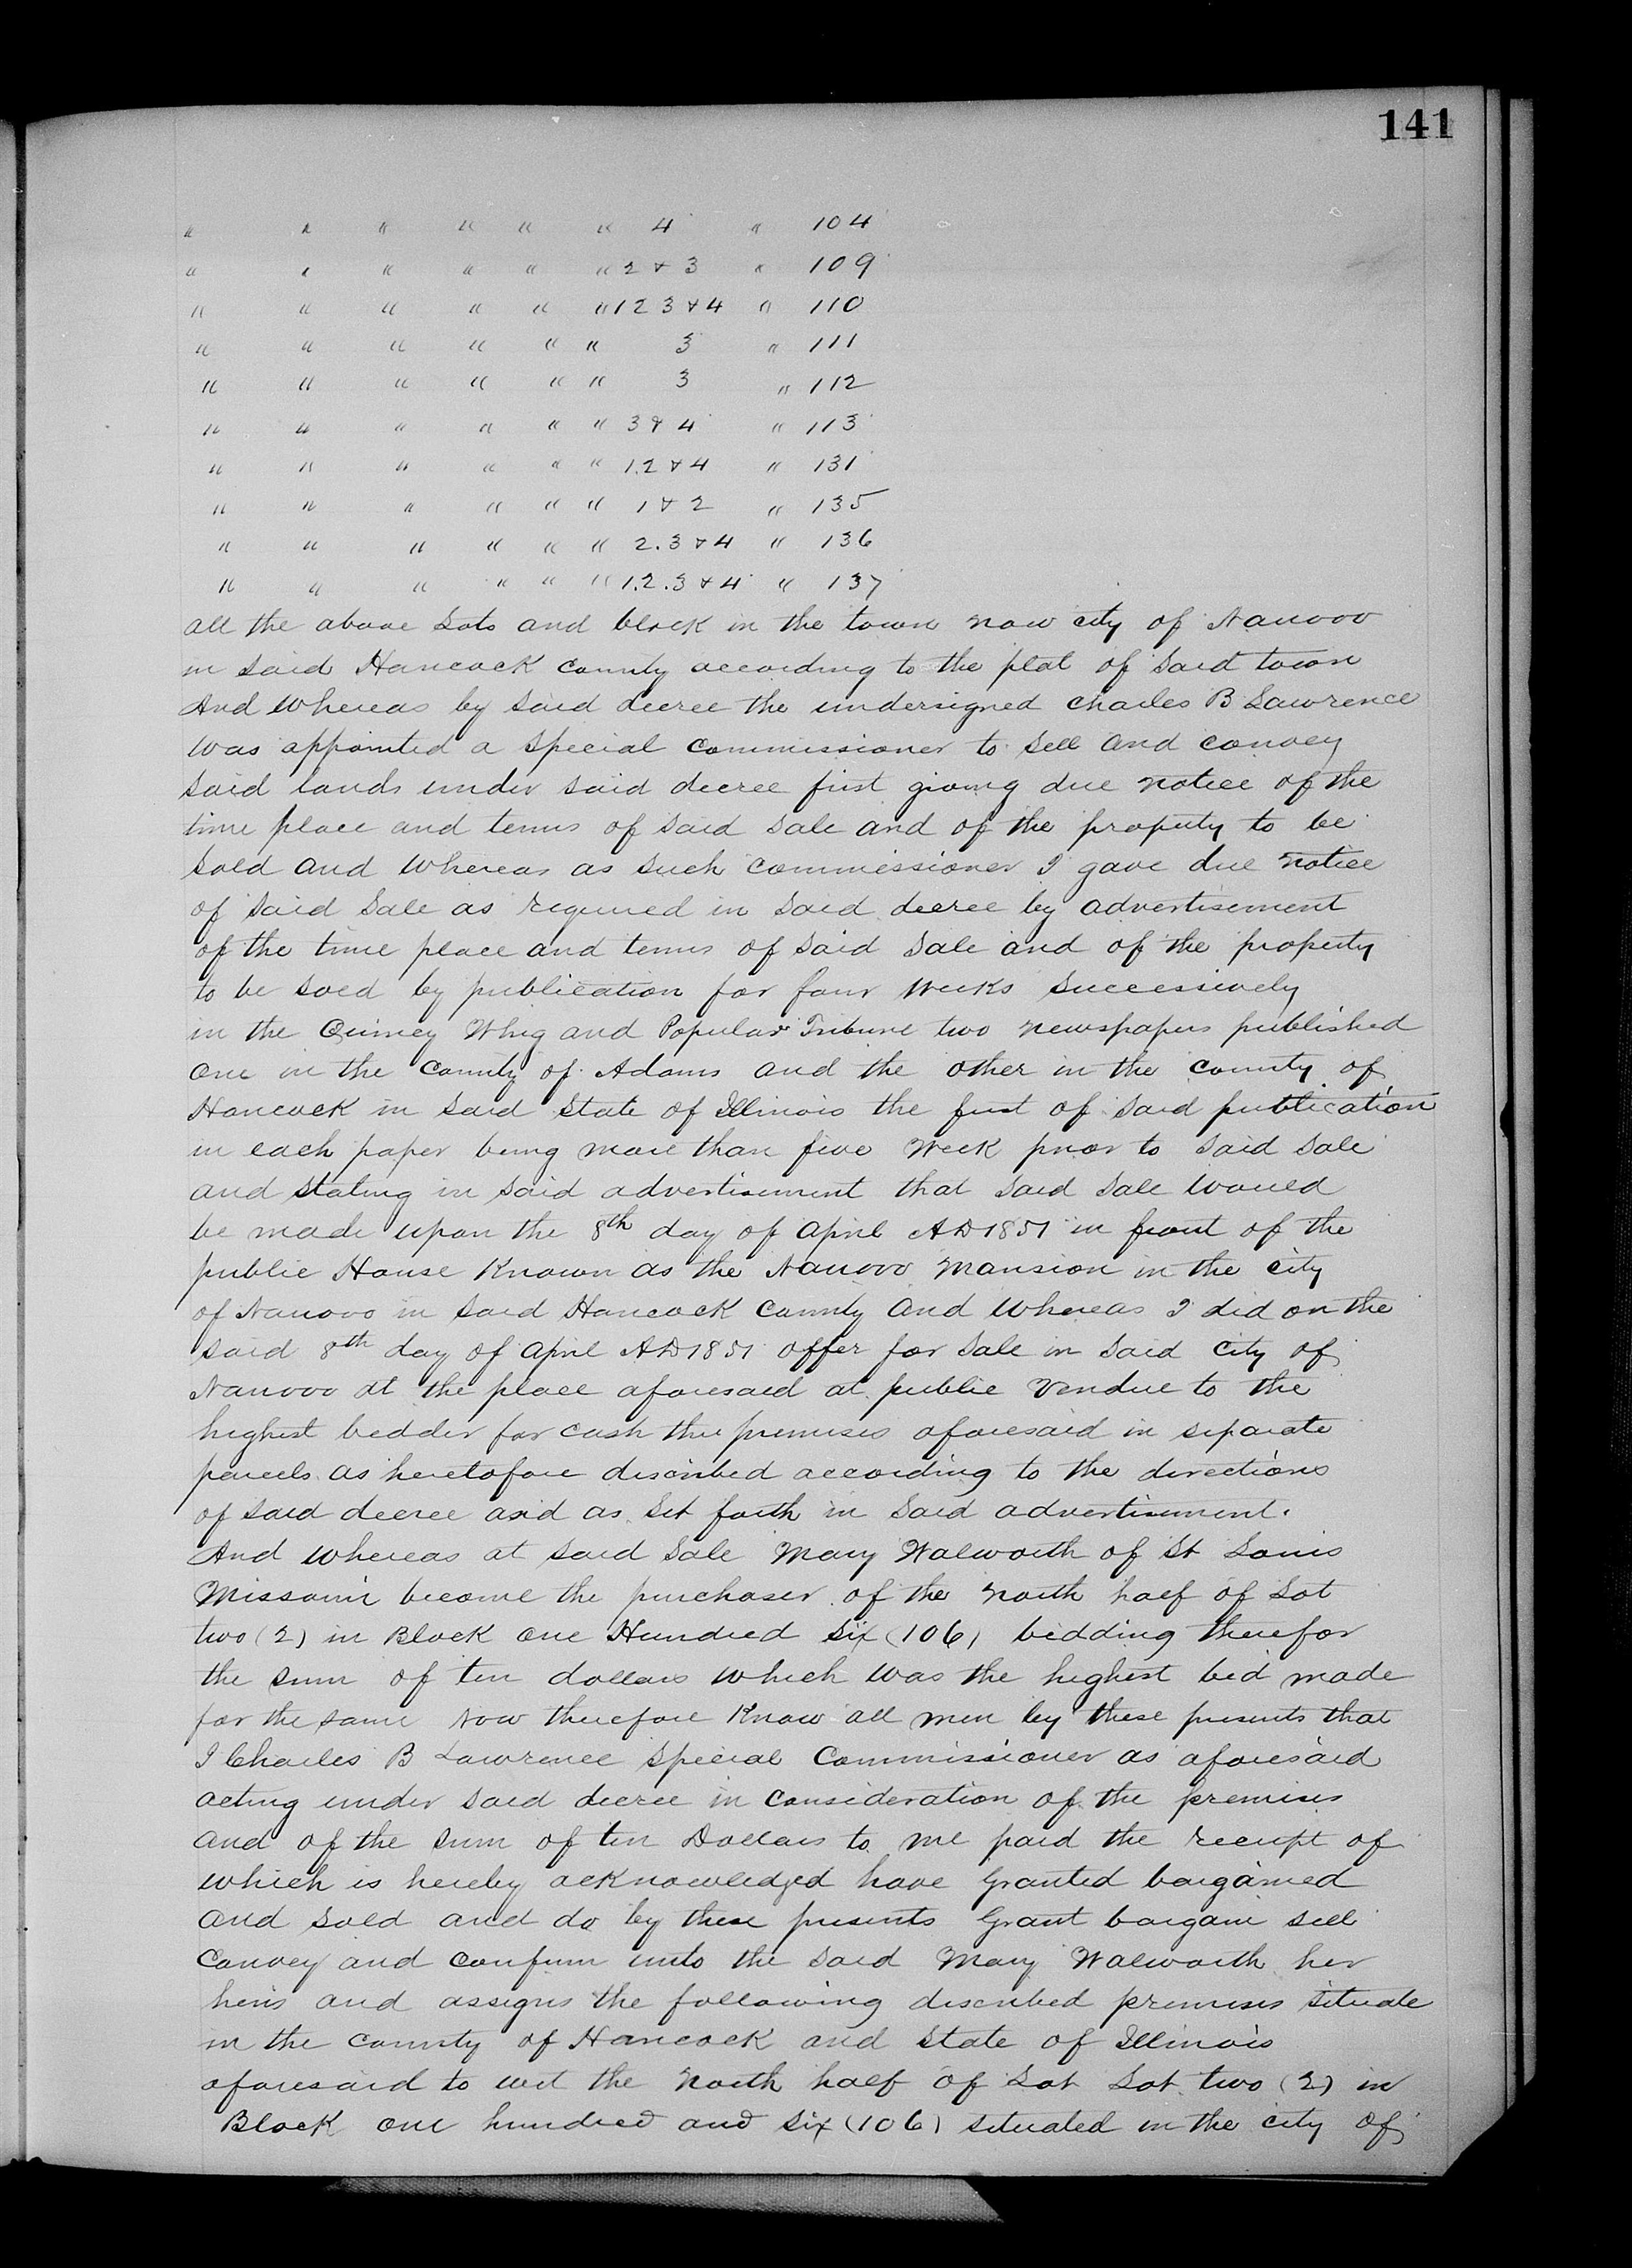 141
" " " " " " 4 " 104
" " " " " " 2 & 3 " 109
" " " " " " 1 2 3 & 4 " 110
" " " " " " 3 " 111
" " " " " " 3 " 112
" " " " " " 3 & 4 " 113
" " " " " " 1.2 & 4 " 131
" " " " " " 1 & 2 " 135
" " " " " " 2.3 & 4 " 136
" " " " " " 1.2.3 & 4 " 137
all the above Lots and block in the town now city of Nauvoo
in said Hancock county according to the plat of said town
And whereas by said decree the undersigned Charles B Lawrence
was appointed a special commissioner to sell and convey
said lands under said decree first giving due notice of the
time place and terms of said sale and of the property to be
sold and whereas as such commissioner I gave due notice
of said sale as required in said decree by advertisement
of the time place and terms of said sale and of the property
to be sold by publication for four weeks successively
in the Quincy Whig and Popular Tribune two newspapers published
one in the county of Adams and the other in the county of
Hancock in said State of Illinois the first of said publication
in each paper being more than five week prior to said sale
and stating in said advertisement that said sale would
be made upon the 8th day of April AD 1851 in front of the
public House Known as the Nauvoo Mansion in the city
of Nauvoo in said Hancock County and whereas I did on the
said 8th day of April AD 1851 offer for sale in said city of
Nauvoo at the place aforesaid at public vendue to the
highest bedder for cash the premises aforesaid in separate
parcels as heretofore discribed according to the directions
of said decree and as set forth in said advertisement.
And whereas at said sale Mary Walworth of St Louis
Missouri become the purchaser of the north half of Lot
two (2) in Block one Hundred six (106) bedding therefor
the sum of ten dollars which was the highest bid made
for the same Now therefore Know all men by these presents that
I Charles B Lawrence Special Commissioner as aforesaid
acting under said decree in consideration of the premises
and of the sum of ten Dollars to me paid the receipt of
which is hereby acknowledged have Granted bargained
and sold and do by these presents Grant bargain sell
Convey and confirm unto the said Mary Walworth her
heirs and assigns the following discribed premises situate
in the county of Hancock and State of Illinois
aforesaid to wit the North half of Lot Lot two (2) in
Block one hundred and six (106) situated in the city of